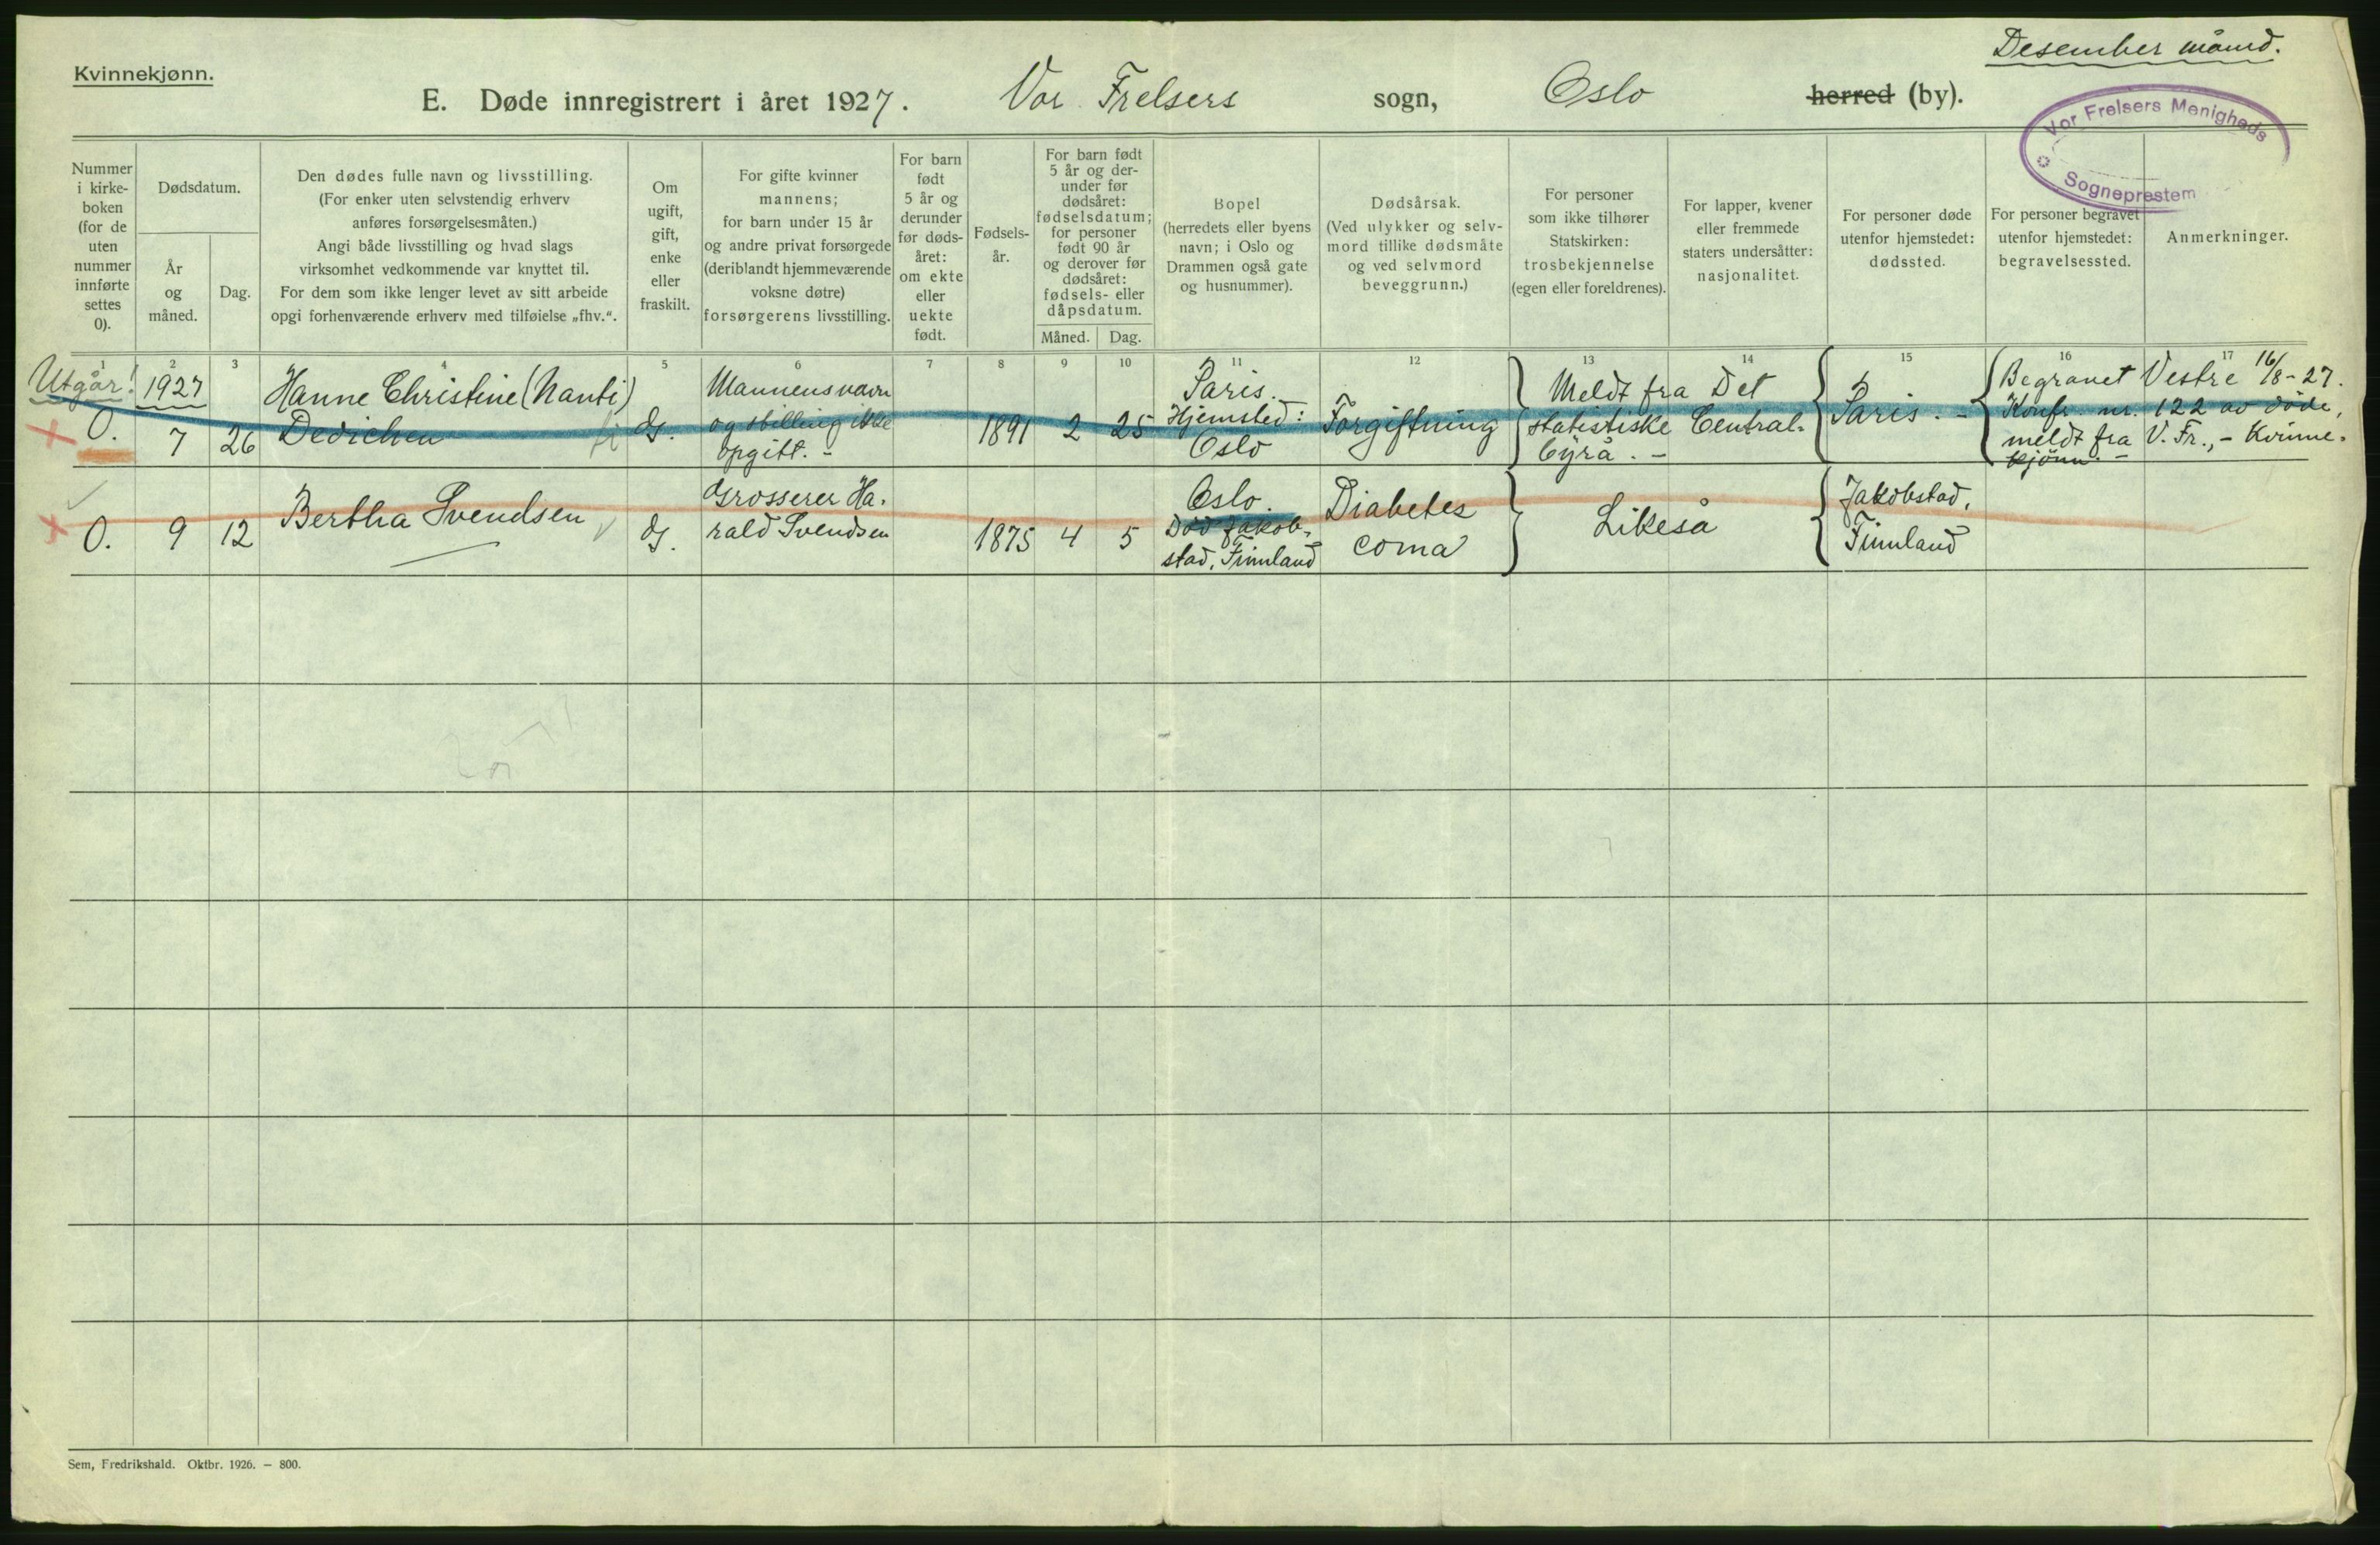 Desember månd.
Kvinnekjønn.
E. Døde innregistrert i året 1927. Vor Frelsers sogn, Oslo herred (by).
Vor Frelsers Menigheds
Sogneprestem
Nummer
i kirke-
boken
(for de
uten
nummer
innførte
settes
0).
Dødsdatum.
År
og
måned.
Dag.
Den dødes fulle navn og livsstilling.
(For enker uten selvstendig erhverv
anføres forsørgelsesmåten.)
Angi både livsstilling og hvad slags
virksomhet vedkommende var knyttet til.
For dem som ikke lenger levet av sitt arbeide
opgi forhenværende erhverv med tilføielse „fhv.“.
Om
ugift,
gift,
enke
eller
fraskilt.
For gifte kvinner
mannens;
for barn under 15 år
og andre privat forsørgede
(deriblandt hjemmeværende
voksne døtre)
forsørgerens livsstilling.
For barn
født
5 år og
derunder
før døds-
året:
om ekte
eller
uekte
født.
Fødsels-
år.
For barn født
5 år og der-
under før
dødsåret:
fødselsdatum;
for personer
født 90 år
og derover før
dødsåret:
fødsels- eller
dåpsdatum.
Måned.
Dag.
Bopel
(herredets eller byens
navn; i Oslo og
Drammen også gate
og husnummer).
Dødsårsak.
(Ved ulykker og selv-
mord tillike dødsmåte
og ved selvmord
beveggrunn.)
For personer
som ikke tilhører
Statskirken:
trosbekjennelse
(egen eller foreldrenes).
For lapper, kvener
eller fremmede
staters undersåtter:
nasjonalitet.
For personer døde
utenfor hjemstedet:
dødssted.
For personer begravet
utenfor hjemstedet:
begravelsessted.
Anmerkninger.
1 2 3 4 5 6 7 8 9 10 11 12 13 14 15 16 17
Utgår!
0.
1927
7
26
Hanne Christine (Nanti)
Dedichen
G.
Mannens navn
og stilling ikke
opgitt. -
1891
2
25
Paris.
Hjemsted:
Oslo
Forgiftning
Meldt fra Det
statistiske Central-
byrå. -
Paris. -
Begravet Vestre 16/8-27.
Konfr. nr. 122 av døde,
meldt fra V. Fr., - Kvinne-
kjønn. -
0.
9
12
Bertha Svendsen
G.
Grosserer Ha-
rald Svendsen
1875
4
5
Oslo.
Død Jakob-
stad, Finnland
Diabetes
coma
Likeså
Jakobstad,
Finnland
Sem, Fredrikshald. Oktbr. 1926. — 800.